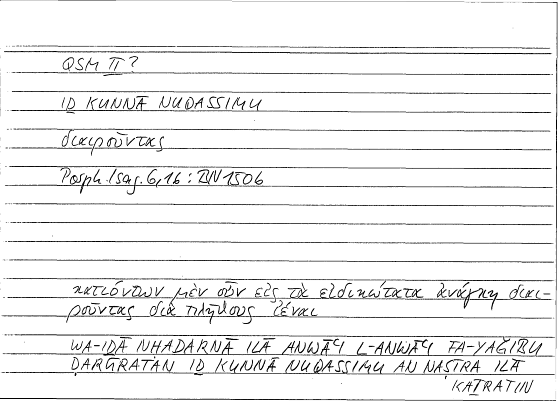 QSM II?
ID KUNNĀ NUQASSIMU
διαιροῦντας
Porph. Isag. 6,16 : IBN 1506
κατιόντων μὲν οὖν εἰς τὰ εἰδικώτατα ἀνάγκη διαι-
ροῦντας διὰ πλήθους ἰέναι
WA-IDĀ NHADARNĀ ILĀ ANWĀʿI L-ANWĀʿI FA-YAǦIBU
ḌARŪRATAN ID KUNNĀ NUQASSIMU AN NASTRA ILĀ
KATRATIN